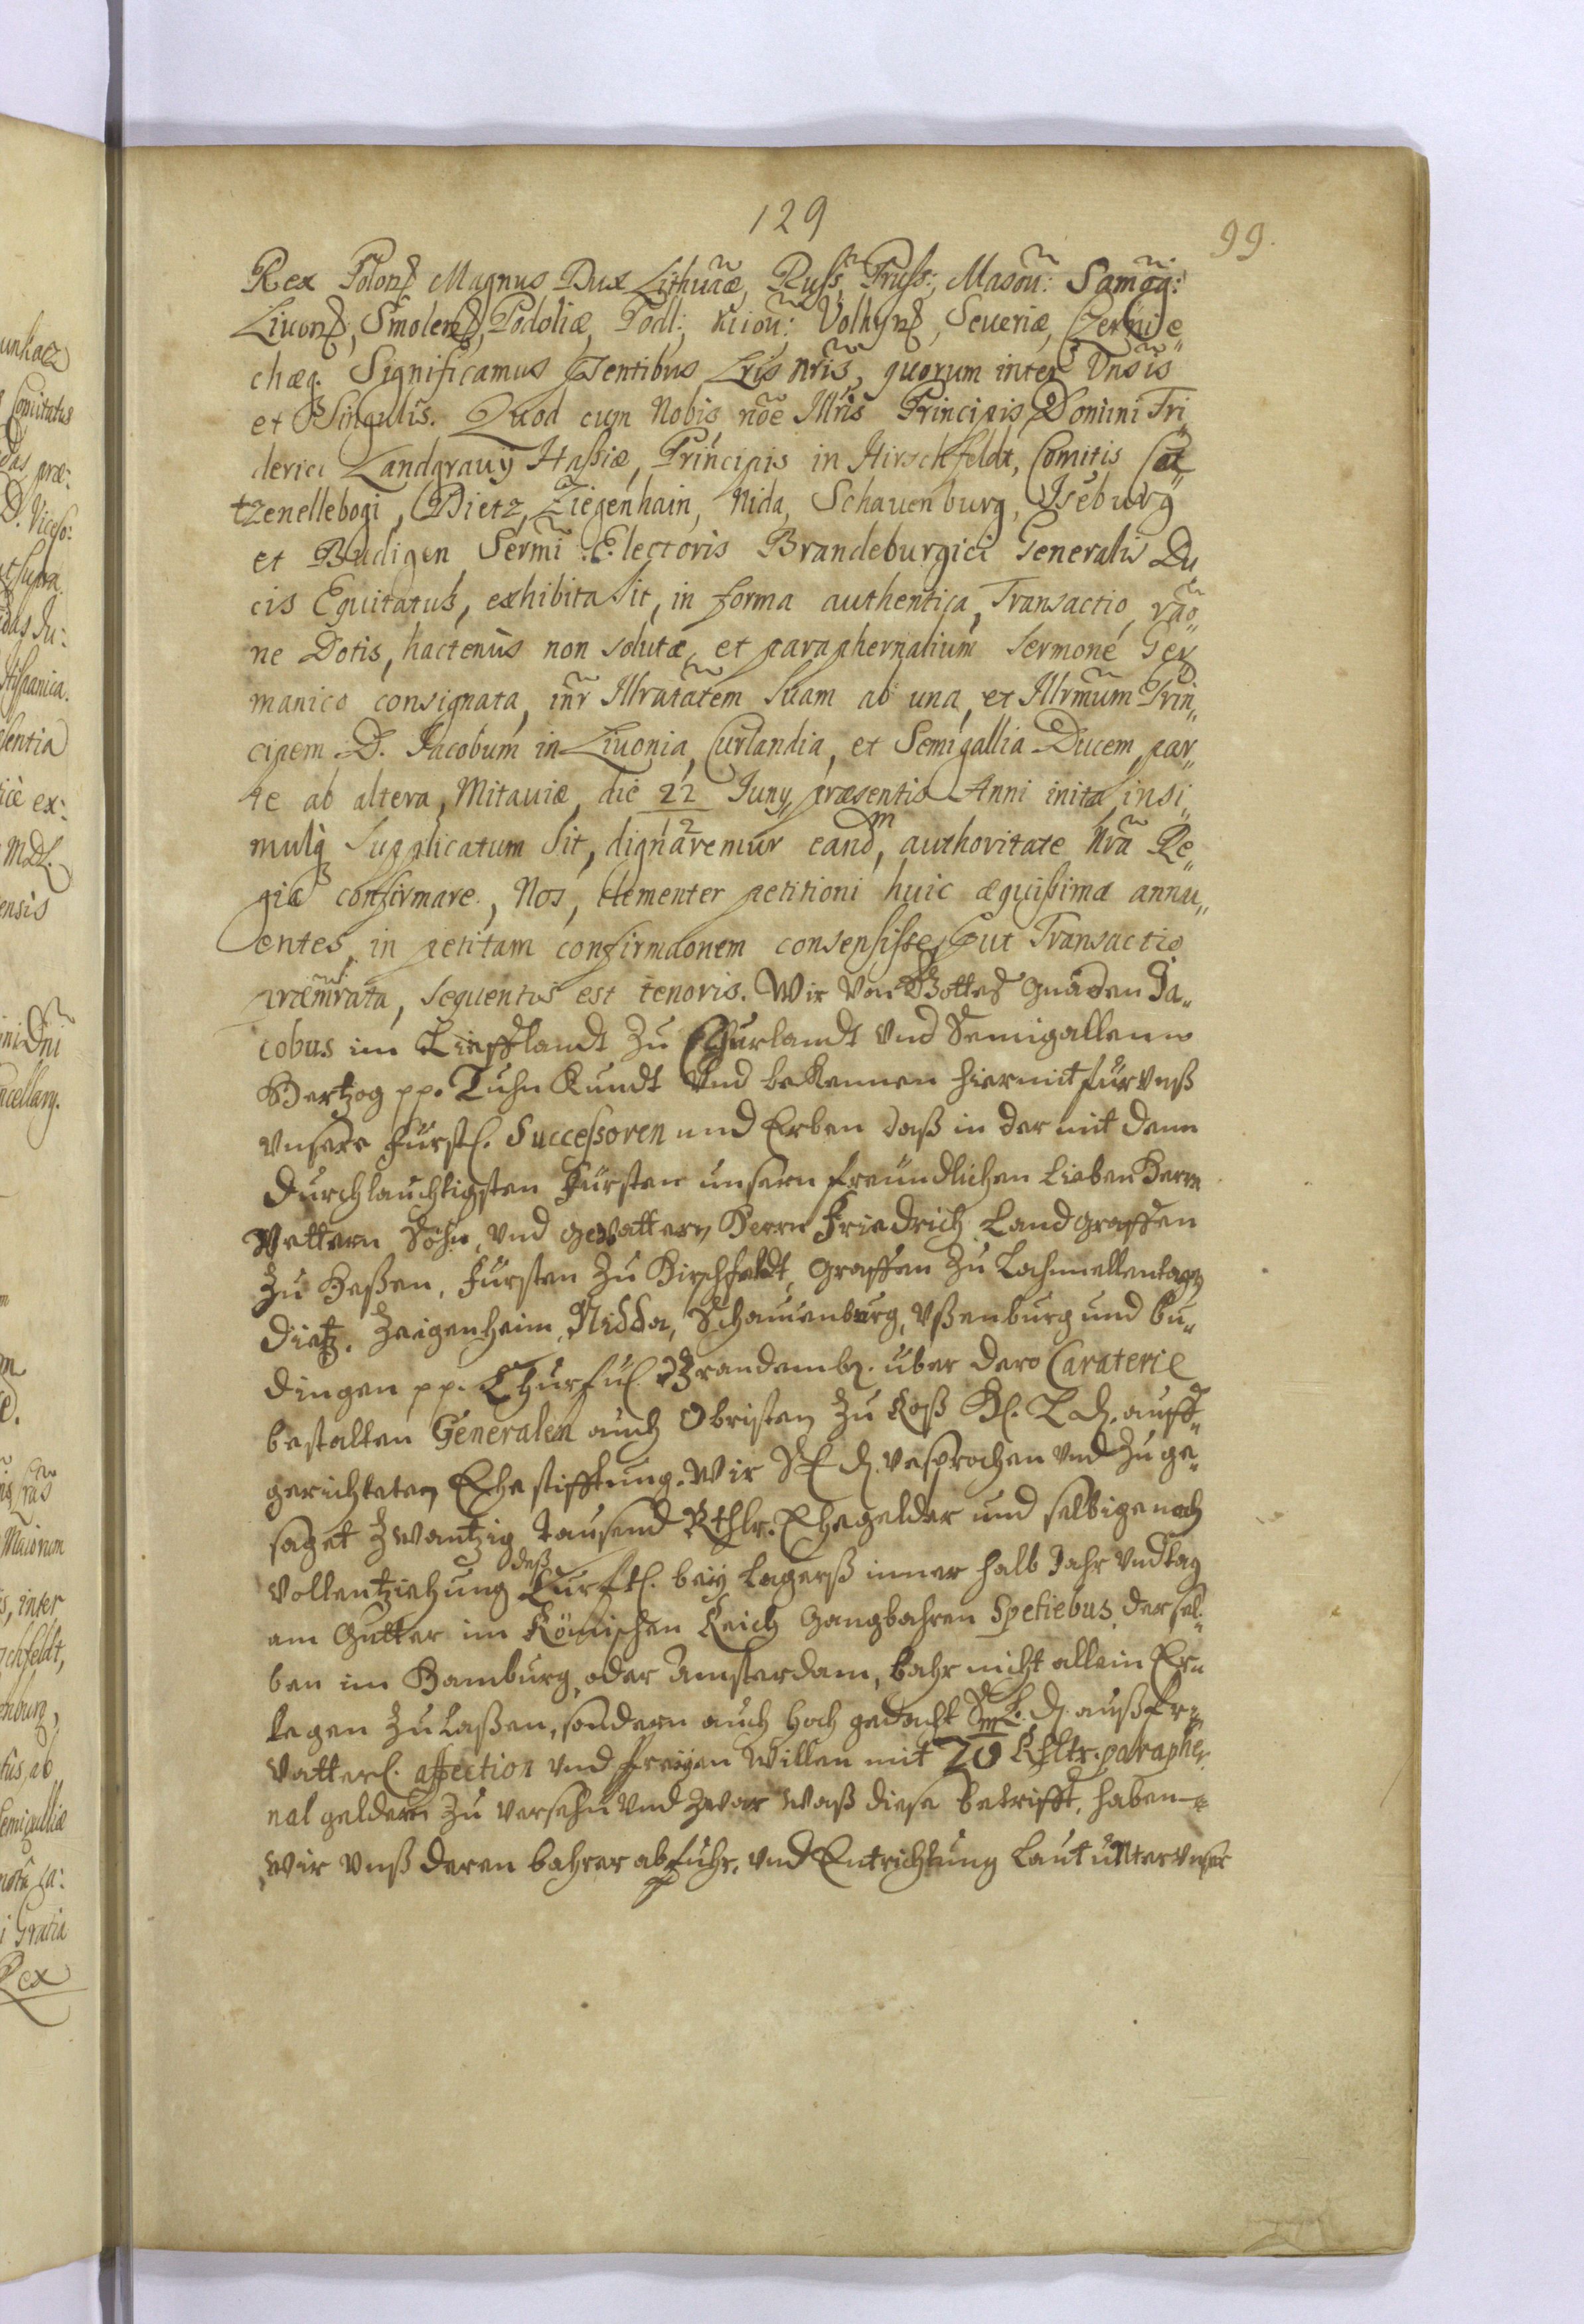 129
99.
Rex Polon Magnus Dux Lithuãæ, Russ, Pruss:, Masoũ: Samog:
Liuon, Smolen, Podoliæ, Podl:, Kiioũ: Volhyn, Seueriæ, Czernie„
chæq. Significamus Pntibus Lris Nris, quorum interest Vnsis
et Singulis. Quod cum Nobis nõe Illris Principis Domini Fri„
derici Landgrauij Hassiæ, Principis in Hirschfeldt, Comitis Cat„
tzenellebogi, Dietz, Ziegenhain, Nida, Schauenburg, Iseburg
et Budigen Sermi Electoris Brandeburgici Generalis Du
cis Equitatus, exhibita sit, in forma authentica, Transactio, rão„
ne Dotis, hactenùs non solutæ, et paraphernalium Sermone Ger
manico consignata, inr̃ Illratatem Suam ab una, et Illrmum Prin„
cipem D. Jacobum in Liuonia, Curlandia, et Semigallia Ducem, par„
te ab altera, Mitauiæ, die 22/12 Juny, præsentis Anni inita, insi„
mulq Supplicatum sit, dignaremur eand^m, authoritate Nrã Re„
gia confirmare, Nos, clementer petitioni huic æquissimæ annu„
entes, in petitam confirmaonem consensisse, put Transactio
præmrata, sequentis est tenoris. Wir von Gottes Gnaden Ja„
cobus im Liefflandt Zu Churlandt Vnd Semigallen
Hertzog pp. Tuhn Kundt Vnd bekennen hiermit für Vnß
Vnsere fürstl. Successoren und Erben daß in der mit dem
Durchlauchtigsten Fürsten unsern freündlichen Lieben Herrn
Vettern Sohn, Vnd Gevattern Herrn Friedrich Landgraffen
Zu Heßen, Fürsten Zu Hirschfeldt, Graffen Zu
Dietz, Zeigenheim, Nidda, Schauenburg, Yßenburg und Bu„
dingen pp. Churfü. Brandemb. über dero Caraterie
bestalten Generalen auch Obristen Zu Roß auff„
gerichteten Ehestifftung. Wir vesprochen Vnd Zu ge„
saget Zwantzig Tausend Rthlr. Ehegelder und selbige nach
Vollentziehung deß Fürstl. beÿ lagerß inner halb Jahr Vnd tag
am Gutter im Römischen Reich Gangbahren Spetiebus dersel„
ben im Hamburg, oder Amsterdam, bahr nicht allein Er„
legen Zu Laßen, sondern auch hoch gedacht auß
Vatterl. affection Vnd freÿen Willen mit 20^m Rhltr. parapher„
nal geldern Zu versehn Vnd Zwar Waß diese betrifft, haben
Wir Vnß deren bahrer abführ, Vnd Entrichtung Laut unter Vnser